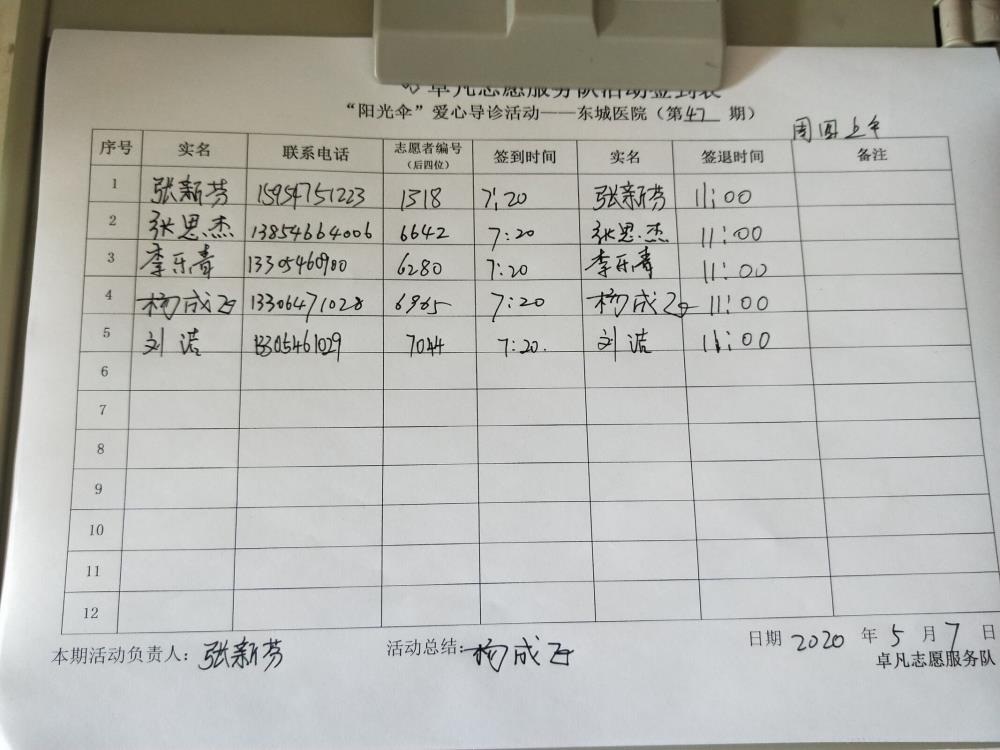 卓凡志愿服务队活动签到表
“阳光伞”爱心导诊活动——东城医院（第47期）
周四上午
序号 实名 联系电话 志愿者编号（后四位） 签到时间 实名 签退时间 备注
1 张新芬 15954751223 1318 7:20 张新芬 11:00
2 张思杰 13854664006 6642 7:20 张思杰 11:00
3 李乐青 6280 7:20 李乐青 11:00
4 杨成飞 13306471028 6965 7:20 杨成飞 11:00
5 刘洁 13305461029 7044 7:20. 刘洁 11:00
6
7
8
9
10
11
12
本期活动负责人：张新芬 活动总结：杨成飞 日期 2020 年 5 月 7 日
卓凡志愿服务队